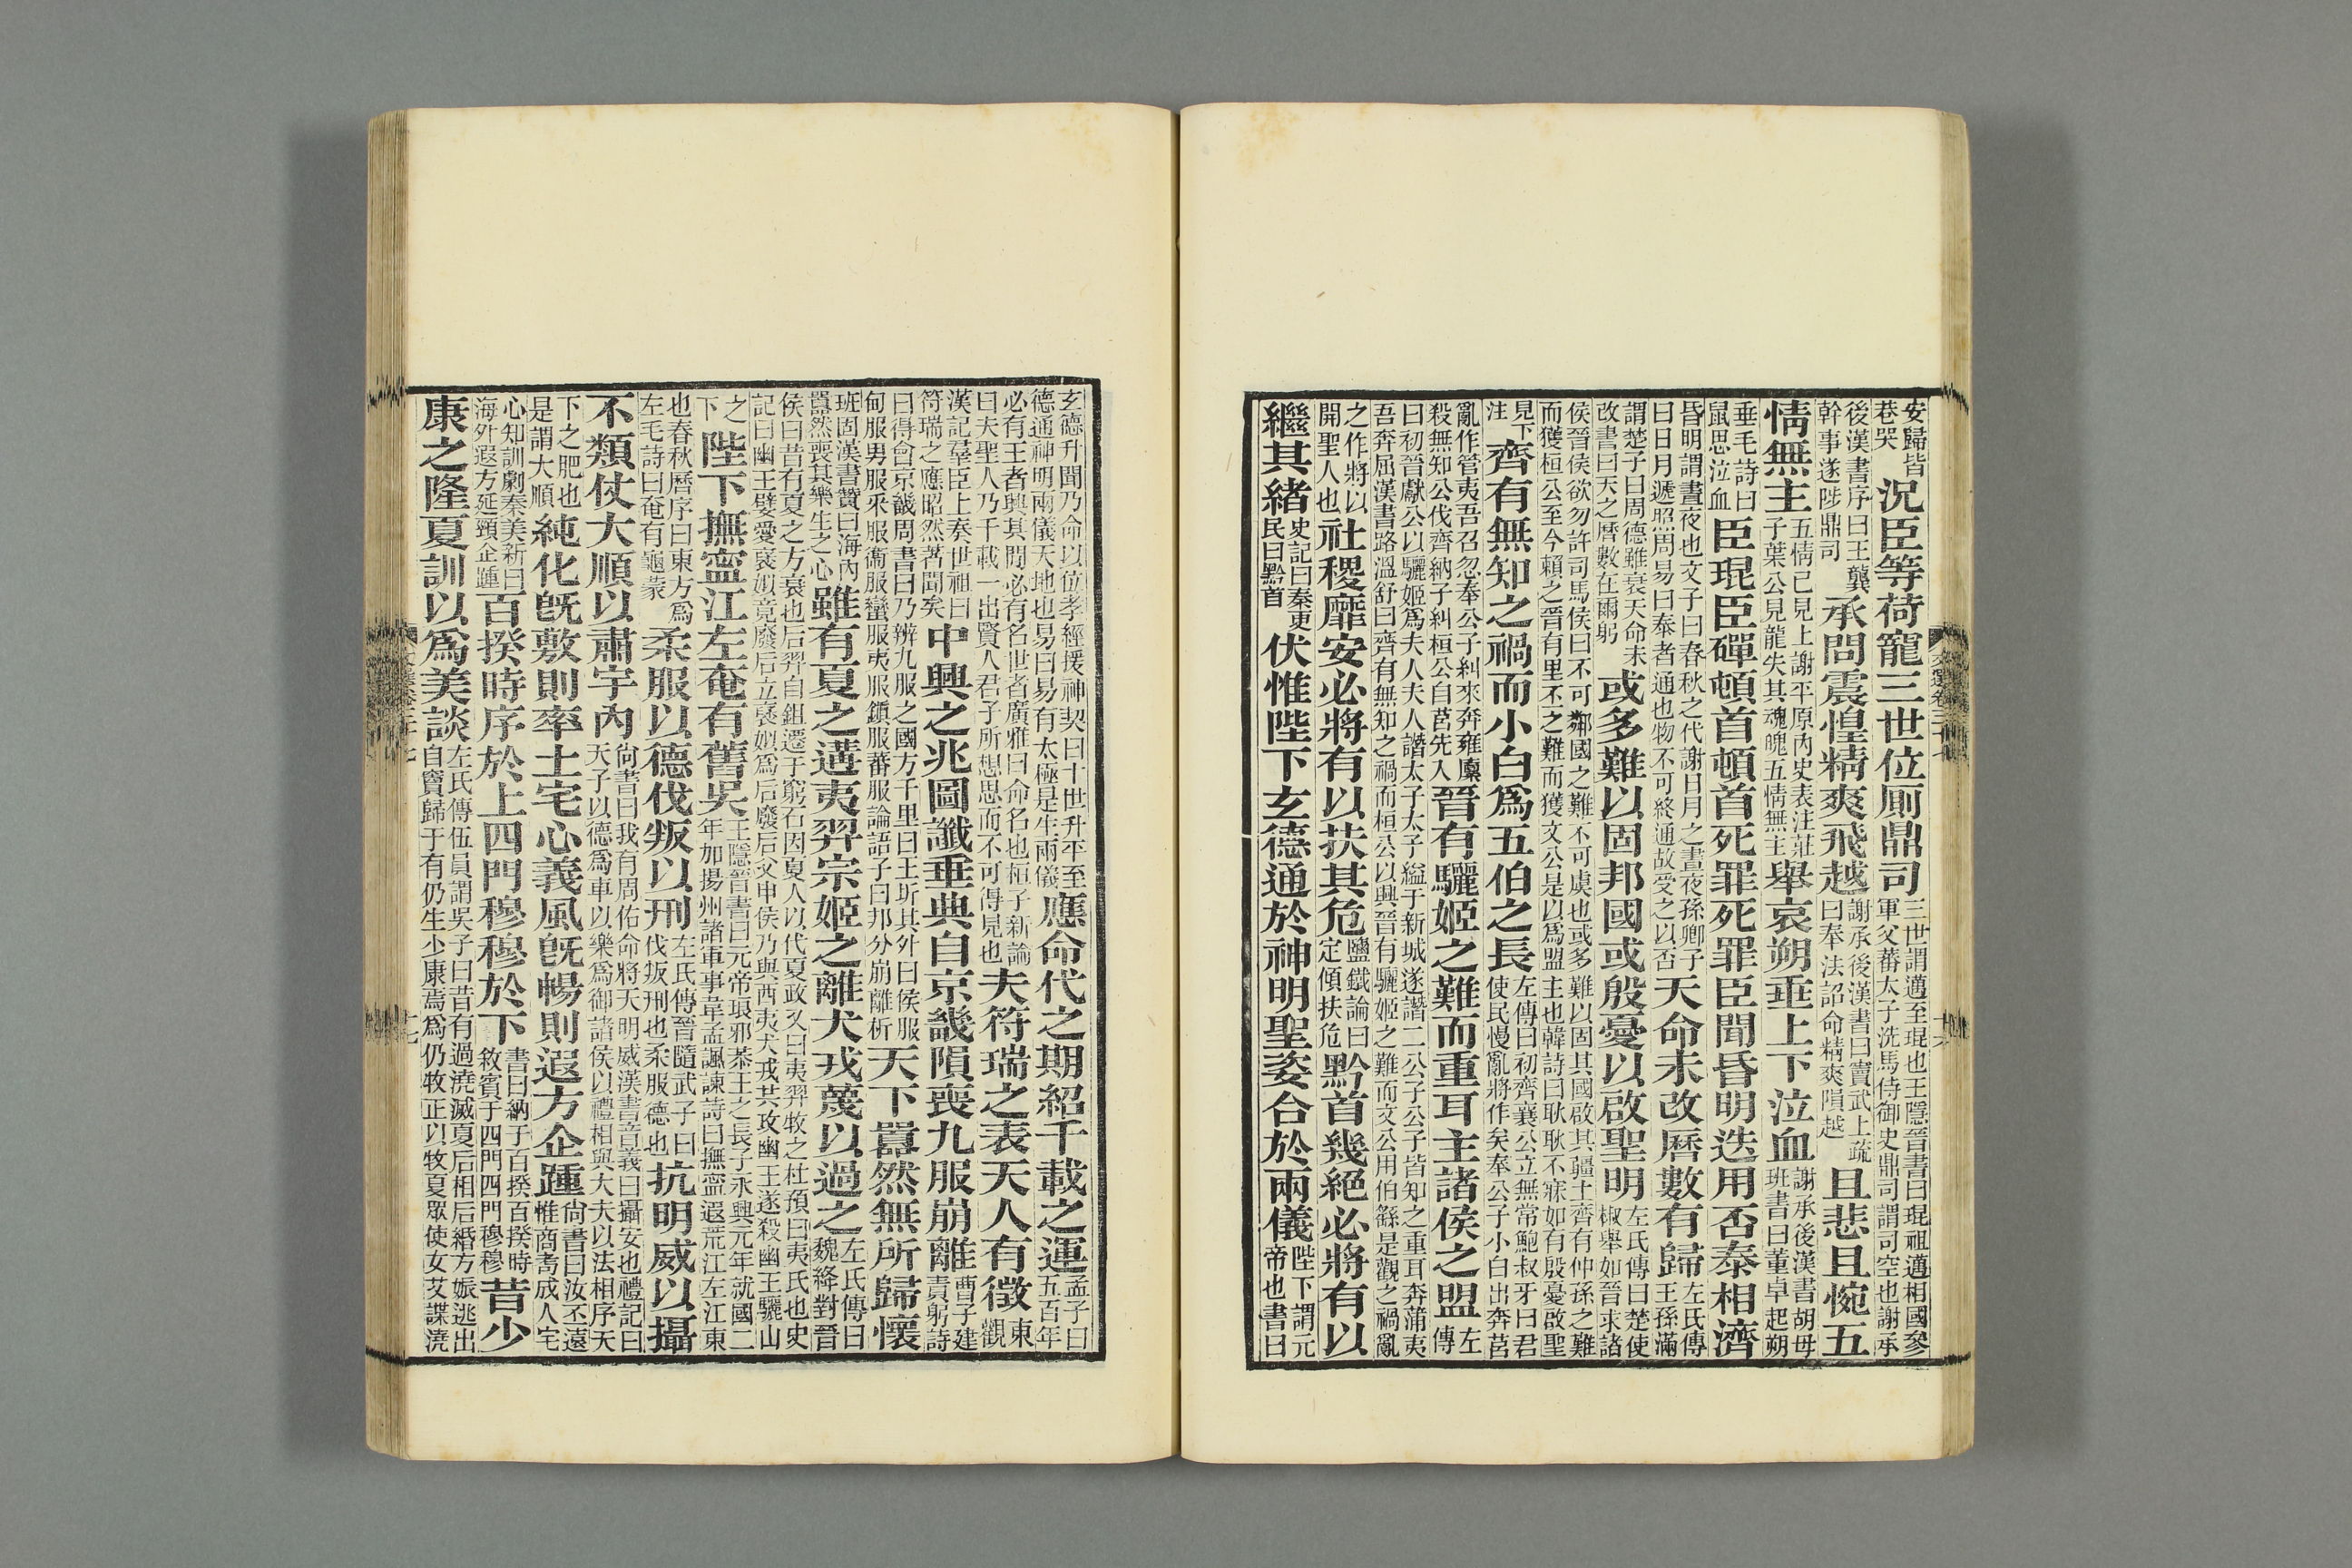 安歸皆巷哭況臣等荷寵三世位廁鼎司三世謂邁至琨也王隱晉書曰琨祖邁相國參軍父蕃太子洗馬侍御史鼎司謂司空也謝承
後漢書序曰王龔幹事遂陟鼎司承問震惶精爽飛越謝承後漢書曰竇武上疏曰奉法詔命精爽隕越且悲且惋五
情無主五情已見上謝平原內史表注莊子葉公見龍失其魂魄五情無主舉哀朔垂上下泣血謝承後漢書胡母班書曰董卓起朔
垂毛詩曰鼠思泣血臣琨臣磾頓首頓首死罪死罪臣聞昏明迭用否泰相濟
昏明謂晝夜也文子曰春秋之代謝日月之晝夜孫卿子曰日月遞照周易曰泰者通也物不可終通故受之以否天命未改曆數有歸左氏傳王孫滿
謂楚子曰周德雖衰天命未改書曰天之曆數在爾躬或多難以固邦國或殷憂以啟聖明左氏傳曰楚使椒舉如晉求諸
侯晉侯欲勿許司馬侯曰不可鄰國之難不可虞也或多難以固其國啟其疆土齊有仲孫之難而獲桓公至今賴之晉有里丕之難而獲文公是以爲盟主也韓詩曰耿耿不寐如有殷憂啟聖
見下注齊有無知之禍而小白爲五伯之長左傳曰初齊襄公立無常鮑叔牙曰君使民慢亂將作矣奉公子小白出奔莒
亂作管夷吾召忽奉公子糾來奔雍廩殺無知公伐齊納子糾桓公自莒先入晉有驪姬之難而重耳主諸侯之盟左傳
曰初晉獻公以驪姬爲夫人夫人譖太子太子縊于新城遂譖二公子公子皆知之重耳奔蒲夷吾奔屈漢書路溫舒曰齊有無知之禍而桓公以興晉有驪姬之難而文公用伯繇是觀之禍亂
之作將以開聖人也社稷靡安必將有以扶其危鹽鐵論曰定傾扶危黔首幾絕必將有以
繼其緒史記曰秦更民曰黔首伏惟陛下玄德通於神明聖姿合於兩儀陛下謂元帝也書曰
玄德升聞乃命以位孝經援神契曰十世升平至德通神明兩儀天地也易曰易有太極是生兩儀應命代之期紹千載之運孟子曰五百年
必有王者興其間必有名世者廣雅曰命名也桓子新論曰夫聖人乃千載一出賢人君子所想思而不可得見也夫符瑞之表天人有徵東觀
漢記羣臣上奏世祖曰符瑞之應昭然著聞矣中興之兆圖讖垂典自京畿隕喪九服崩離曹子建責躬詩
曰得會京畿周書曰乃辨九服之國方千里曰王圻其外曰侯服甸服男服采服衞服蠻服夷服鎮服蕃服論語子曰邦分崩離析天下囂然無所歸懷
班固漢書贊曰海內囂然喪其樂生之心雖有夏之遘夷羿宗姬之離犬戎蔑以過之左氏傳曰魏絳對晉
侯曰昔有夏之方衰也后羿自鉏遷于窮石因夏人以代夏政又曰夷羿牧之杜預曰夷氏也史記曰幽王嬖愛褒姒竟廢后立褒姒爲后廢后父申侯乃與西夷犬戎共攻幽王遂殺幽王驪山
之下陛下撫寧江左奄有舊吳王隱晉書曰元帝琅邪恭王之長子永興元年就國二年加揚州諸軍事韋孟諷諫詩曰撫寧遐荒江左江東
也春秋曆序曰東方爲左毛詩曰奄有龜蒙柔服以德伐叛以刑左氏傳晉隨武子曰伐叛刑也柔服德也抗明威以攝
不類仗大順以肅宇內尚書曰我有周佑命將天明威漢書音義曰攝安也禮記曰天子以德爲車以樂爲御諸侯以禮相與大夫以法相序天
下之肥也是謂大順純化旣敷則率土宅心義風旣暢則遐方企踵尚書曰汝丕遠惟商耇成人宅
心知訓劇秦美新曰海外遐方延頸企踵百揆時序於上四門穆穆於下書曰納于百揆百揆時敘賓于四門四門穆穆昔少
康之隆夏訓以爲美談左氏傳伍員謂吳子曰昔有過澆滅夏后相后緡方娠逃出自竇歸于有仍生少康焉爲仍牧正以牧夏眾使女艾諜澆